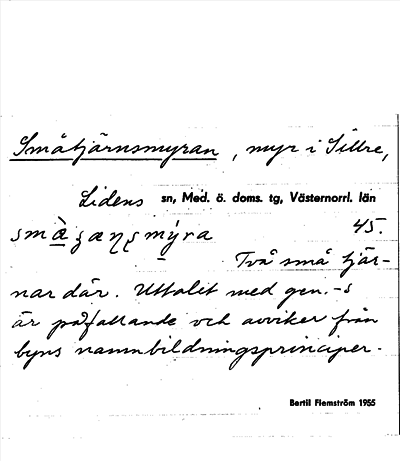 Småtjärnsmyran, myr i Sillre,
Lidens sn, Med. ö. doms. tg, Västernorrl. län
45.
Två små tjär-
nar där. Uttalet med gen. -s
är påfallande och avviker från
byns namnbildningsprinciper.
Bertil Flemström 1955